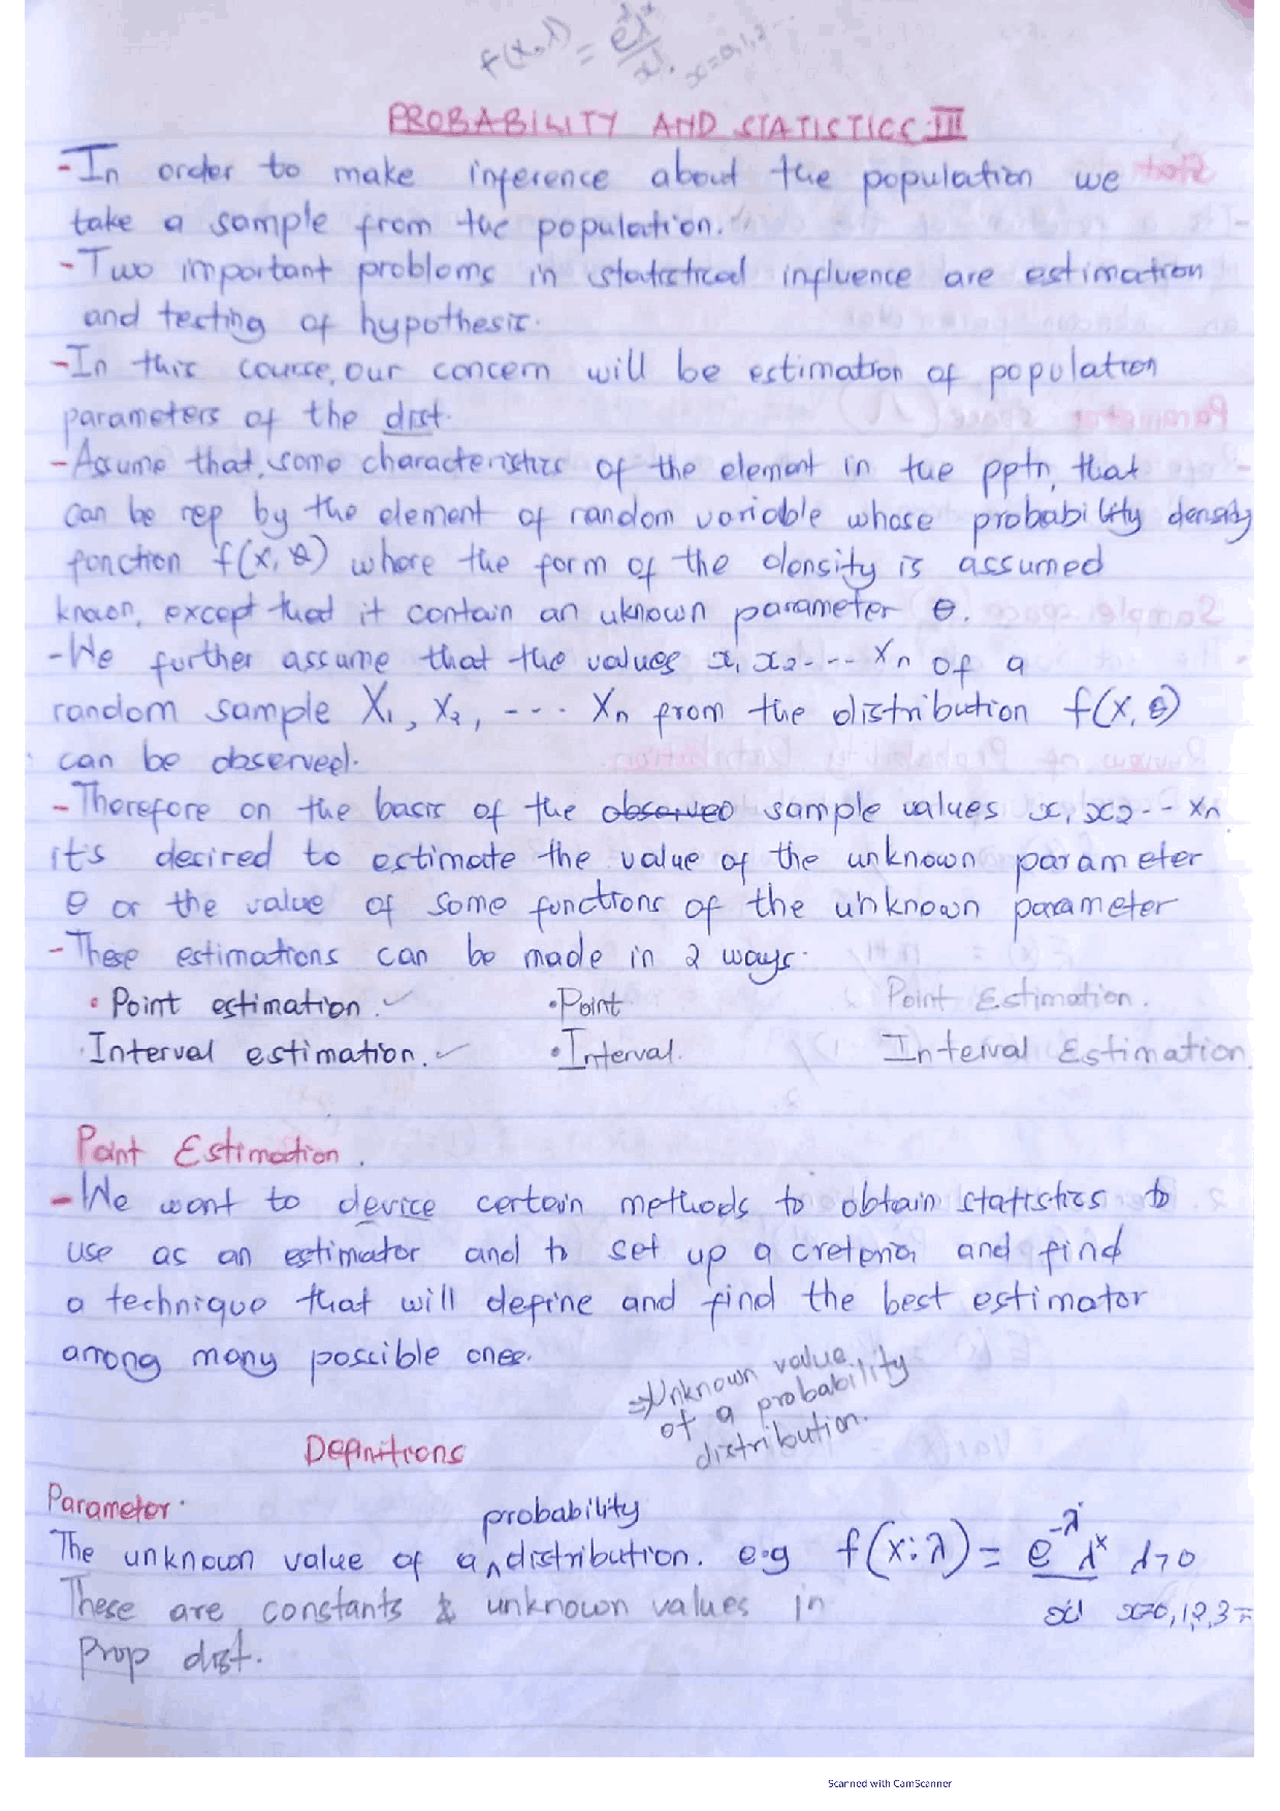 f(x,λ) = e^λ λ^x / x!  x=0,1,2--
PROBABILITY AND STATISTICS III
-In order to make inference about the population we
take a sample from the population.
-Two important problems in statistical influence are estimation
and testing of hypothesis.
-In this course, our concern will be estimation of population
parameters of the dist.
-Assume that some characteristics of the element in the pptn, that
can be rep by the element of random variable whose probability density
function f(x, θ) where the form of the density is assumed
known, except that it contain an uknown parameter θ.
-We further assume that the values x1 x2---- Xn of a
random sample X1, X2, ---- Xn from the distribution f(x, θ)
can be observed.
-Therefore on the basis of the observed sample values x1 x2-- Xn
it's desired to estimate the value of the unknown parameter
θ or the value of some functions of the unknown parameter
-These estimations can be made in 2 ways.
• Point estimation. ✓ •Point Point Estimation.
·Interval estimation. ✓ •Interval. Interval Estimation
Point Estimation.
-We want to device certain methods to obtain statistics to
use as an estimator and to set up a creteria and find
a technique that will define and find the best estimator
among many possible ones.
⇒Unknown value
of a probability
distribution.
Definitions
Parameter.
probability
The unknown value of a ^ distribution. e.g f(x:λ) = e^-λ λ^x / x! λ>0
These are constants & unknown values in x=0,1,2,3--
Prop dist.
Scanned with CamScanner